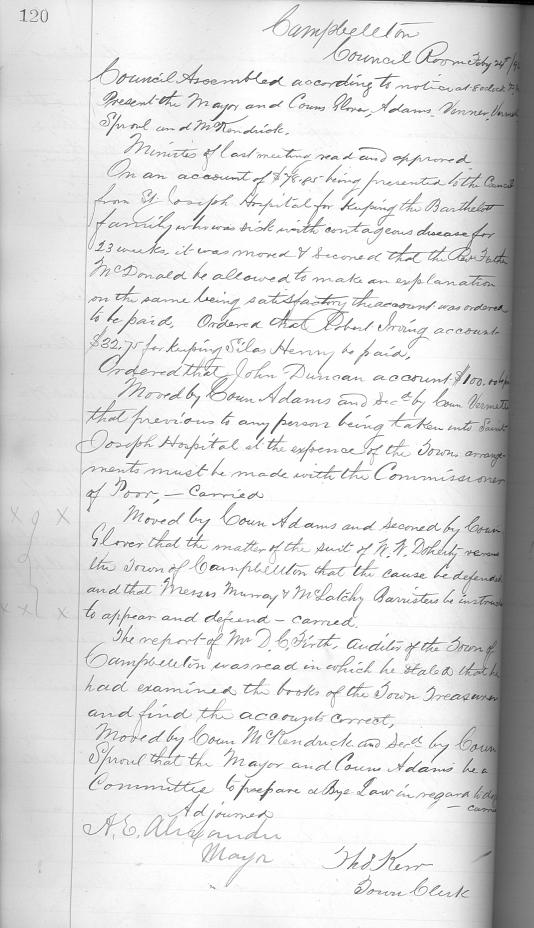 120
Campbellton
Council Room Feby 24th
Council Assembled according to notice at 8 oclock
Present the Mayor and Couns Glover, Adams, Venner,
Sproul and McKendrick.
Minutes of last meeting read and approved
On an account of being presented to the Council
from St Joseph Hospital for keeping the Barthelott
family who was sick with contageous disease for
23 weeks, it was moved & seconed that the Rev Father
McDonald be allowed to make an explanation
on the same being satisfactory the account was ordered
to be paid. Ordered that Robert Irving account
$32.75 for keeping Silas Henry be paid.
Ordered that John Duncan account $100.00
Moved by Coun Adams and Secd by Coun
that previous to any person being taken into Saint
Joseph Hospital at the expence of the Town arrange-
ments must be made with the Commissioner
of Poor, — Carried
Moved by Coun Adams and seconed by Coun
Glover that the matter of the suit of W. W. Doherty versus
the Town of Campbellton that the cause be defended
and that Messrs Murray & McLatchy Barristers be
to appear and defend — carried.
The report of Mr D. C. Firth, auditor of the Town of
Campbellton was read in which he stated that he
had examined the books of the Town Treasurer
and find the accounts correct,
Moved by Coun McKendrick and Secd by Coun
Sproul that the Mayor and Couns Adams be a
Committee to prepare a Bye Law in regard to
— carrie
Adjourned
A. E. Alexander
Mayor
Thos Kerr
Town Clerk